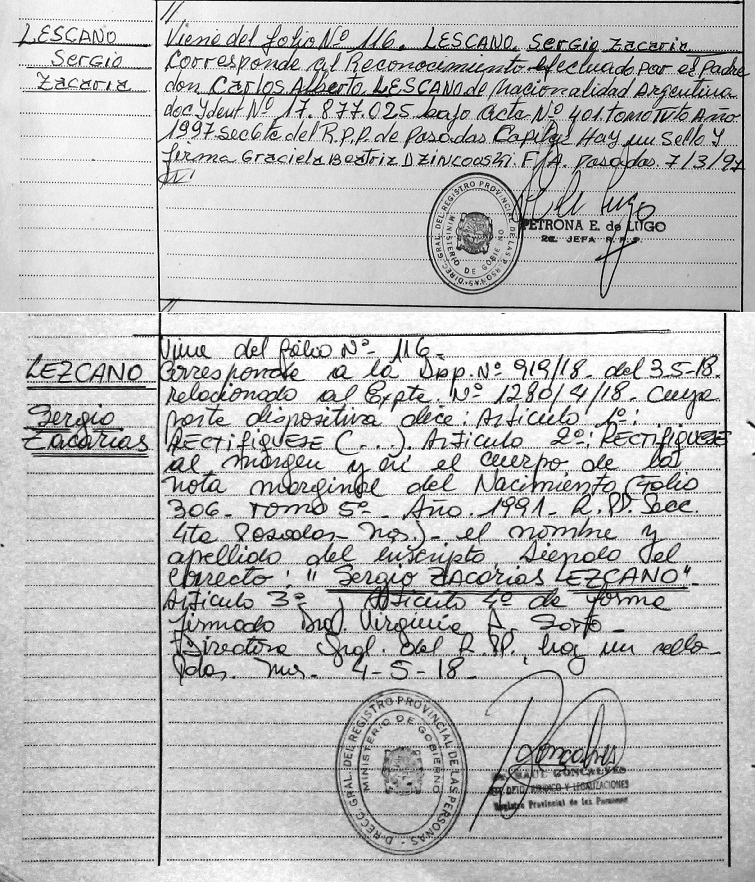 //
LESCANO
Sergio
Zacaria
Viene del folio Nº 116. LESCANO, Sergio Zacaria
Corresponde al Reconocimiento efectuado por el Padre
don Carlos Alberto LESCANO de nacionalidad Argentina
doc Ydent Nº 17.877.025 bajo acta Nº 401. tomo 1 Año
1997 Secc 6ta del R.P.P. de Posadas Capital Hay un Sello Y
firma Graciela Beatriz F/A. Posadas 7/3/97
DIREC. GRAL. DEL REGISTRO PROVINCIAL DE LAS PERSONAS
MINISTERIO DE GOBIERNO
PETRONA E. de LUGO
JEFA R.P.P.
//
LEZCANO
Sergio
Zacarias
Viene del folio Nº 116.
Corresponde a la Disp. Nº 919/18. del 3.5-18.
relacionado al Expte. Nº 1280/4/18. Cuya
parte dispositiva dice: Articulo 1º:
RECTIFIQUESE (...). Articulo 2º: RECTIFIQUESE
al margen y en el cuerpo de las
nota marginal del Nacimiento (Folio
306. Tomo 5º. Año. 1991. R.PP. Secc.
4ta Posadas Mnes.) el nombre y
apellido del inscripto siendo el
correcto: "Sergio ZACARIAS LEZCANO".
Articulo 3º, Articulo 4º de forma
firmado Virginia
Directora Gral. del R.PP. hay un sello
Pdas. Mnes. 4-5-18.
DIRECC. GRAL. DEL REGISTRO PROVINCIAL DE LAS PERSONAS
MINISTERIO DE GOBIERNO
RAUL GONCALVES
DPTO. JURIDICO Y LEGALIZACIONES
Registro Provincial de las Personas